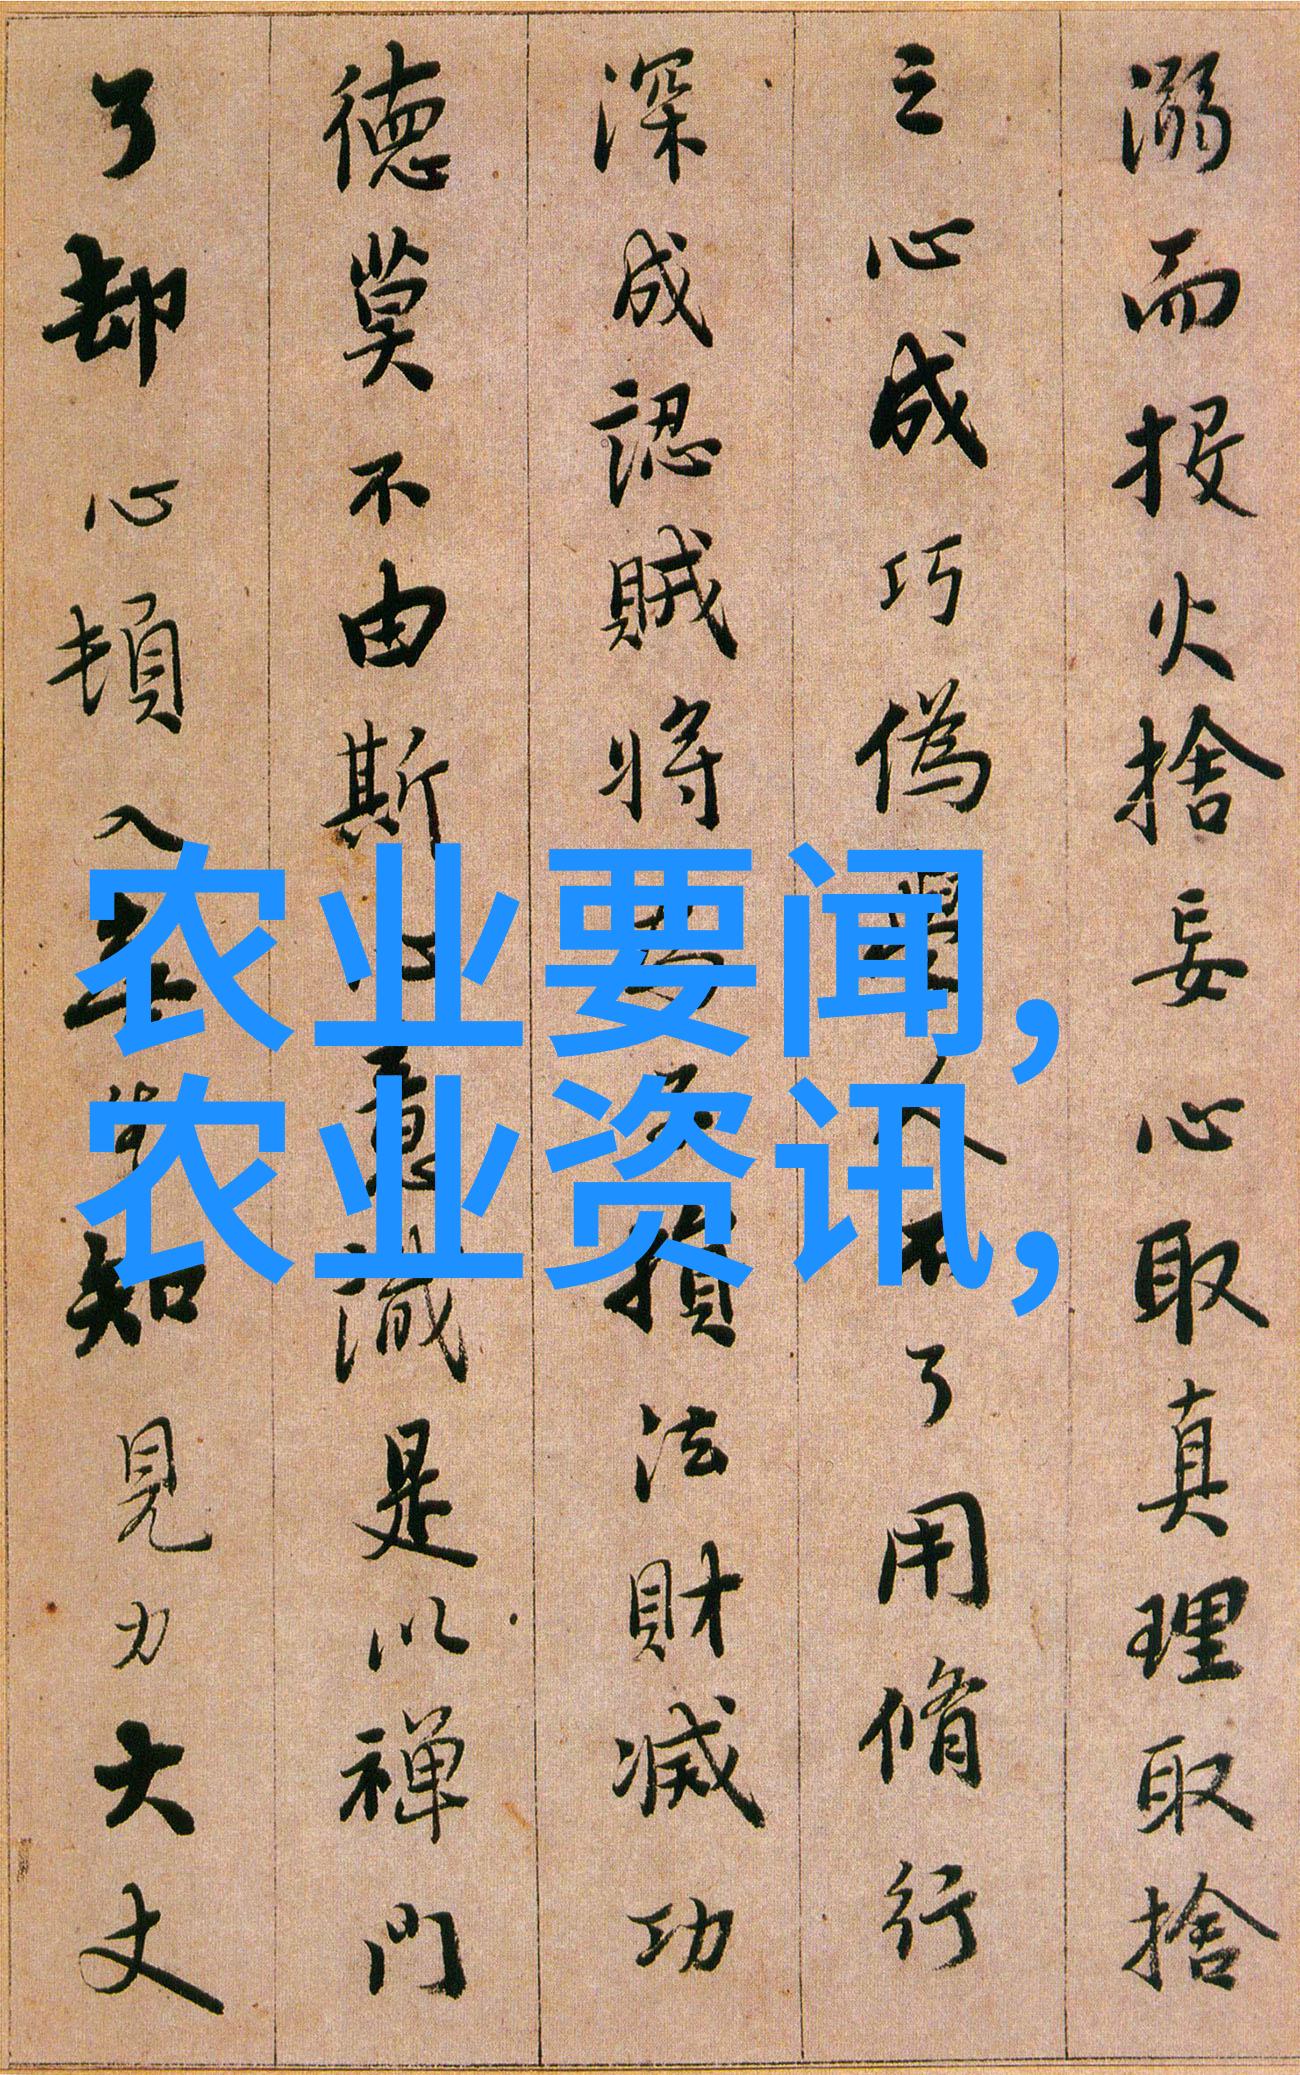 溺而投火捨妄心取真理取捨
之心成巧偽學人不了用脩行
深成認賊將為子損法財滅功
德莫不由斯心意識是以禪門
了却心頓入無生知見力大丈
农业要闻,
农业资讯,